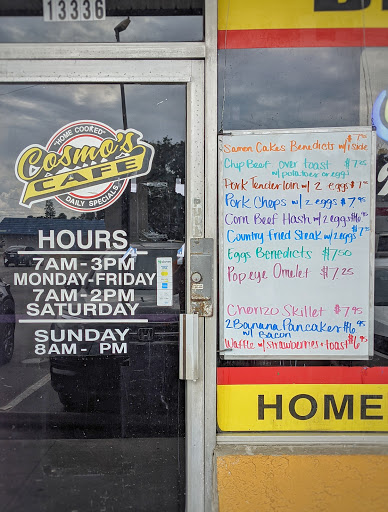 13336
"HOME COOKED"
Cosmo's
CAFE
DAILY SPECIALS
HOURS
7AM-3PM
MONDAY-FRIDAY
7AM-2PM
SATURDAY
SUNDAY
8AM- PM
Samon Cakes Benedicts w/1 side
Chip Beef over toast $7.95
w/potatoes or eggs
Pork Tenderloin w/2 eggs
Pork Chops w/2 eggs $7.95
Corn Beef Hash w/2 eggs $6.95
Country Fried Steak w/2 eggs $7.95
Eggs Benedicts $7.50
Popeye Omelet $7.25
Chorizo Skillet $7.95
2 Banana Pancakes $6.95
w/ Bacon
Waffle w/strawberries + toast $6.95
HOME